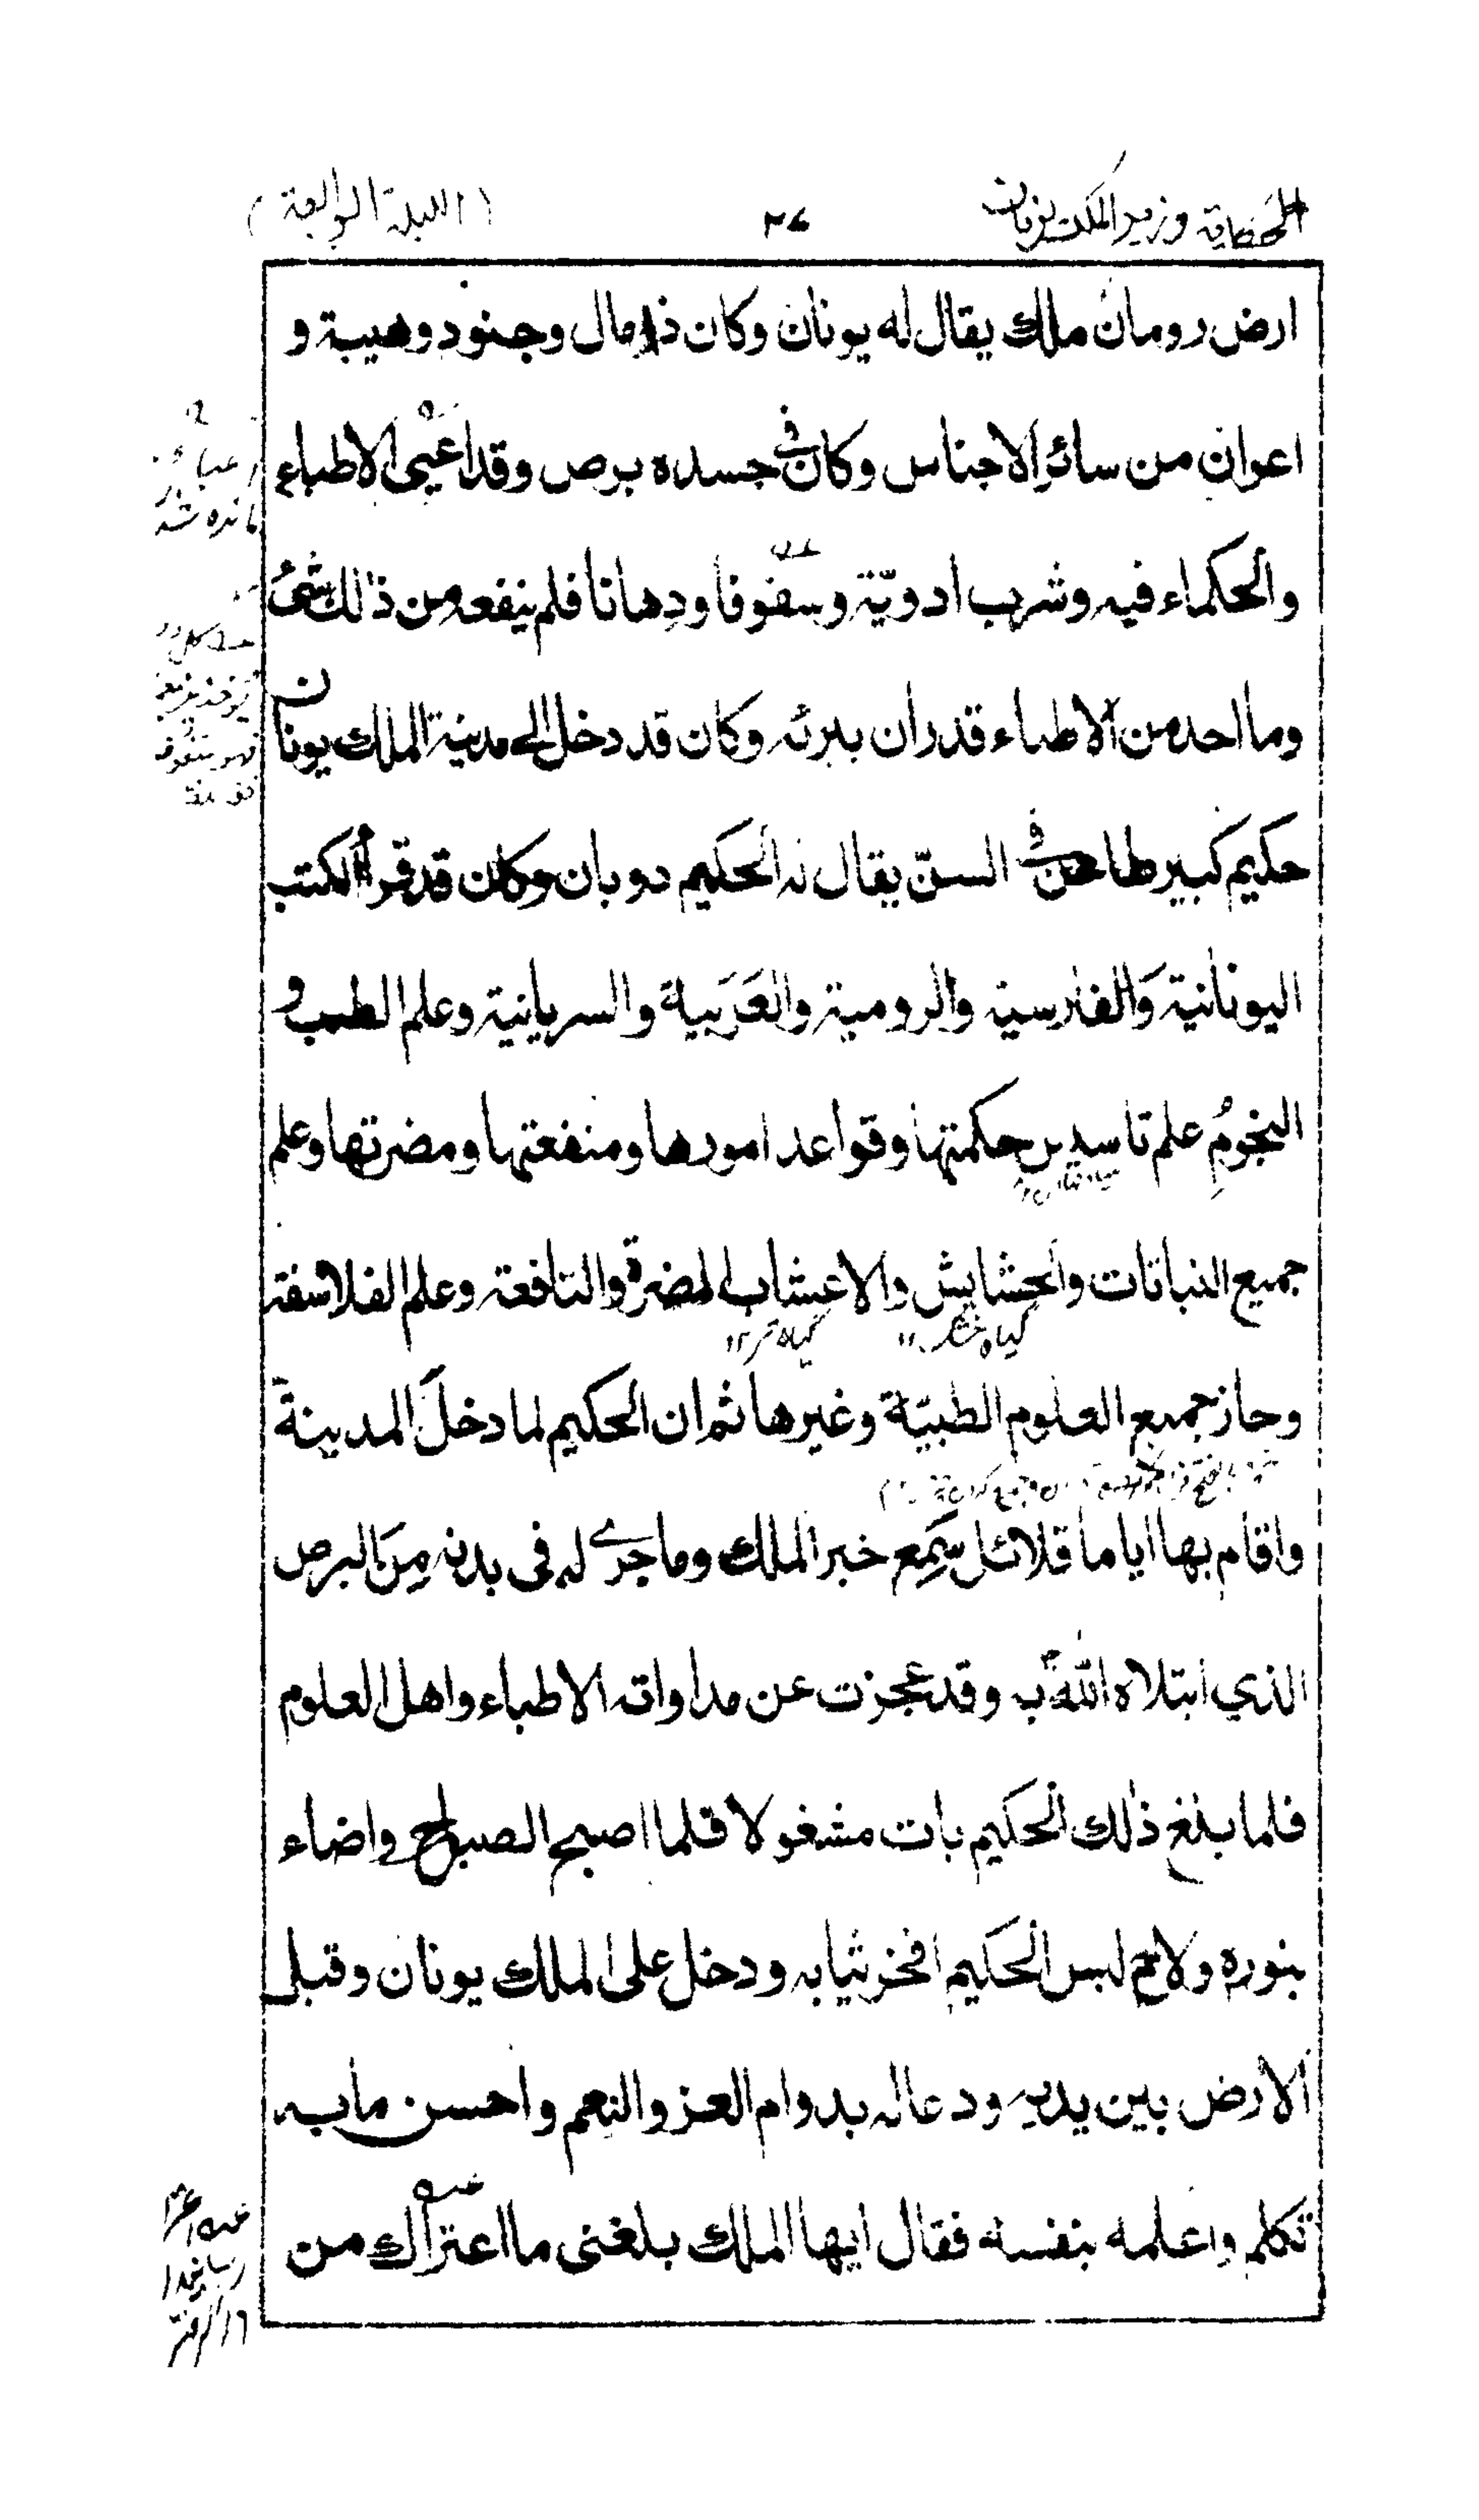 وزير الملك يونان ٣٤ (الليلة الرابعة)
ارض رومان ملك يقال له يونان وكان ذا مال وجنود وهيبة و
اعوان من سائر الاجناس وكان في جسده برص وقد اعيى الاطباء
والحكماء فيه وشرب ادويّة وسفوفا ودهانا فلم ينفعه من ذلك شئ
وما احد من الاطباء قدر ان يبرئه وكان قد دخل الى مدينة الملك يونان
حكيم كبير طاعن في السن يقال له الحكيم دوبان وكان قد قرأ الكتب
اليونانية والفارسية والرومية والعَرَبية والسريانية وعلم الطب و
النجومُ علم تاسيس حكمتها وقواعد امورها ومنفعتها ومضرتها وعلم
جميع النباتات والحشايش والاعشاب المضرة والنافعة وعلم الفلاسفة
وحاز جميع العلوم الطبيّة وغيرها ثم ان الحكيم لما دخلَ المدينةَ
واقام بها اياما قلائل سَمِع خبر الملك وما جرى له في بدنه مِنَ البرص
الذي ابتلاه اللّٰهُ به وقد عجزت عن مداواته الاطباء واهل العلوم
فلما بلغ ذلك الحكيم بات مشغولا فلما اصبح الصباح واضاء
بنوره ولاح لبس الحكيم افخر ثيابه ودخل على الملك يونان وقبل
الارض بين يديه ودعا له بدوام العز والنعم واحسن ما به
تكلم واعلمه بنفسه فقال ايها الملك بلغني ما اعتراك من